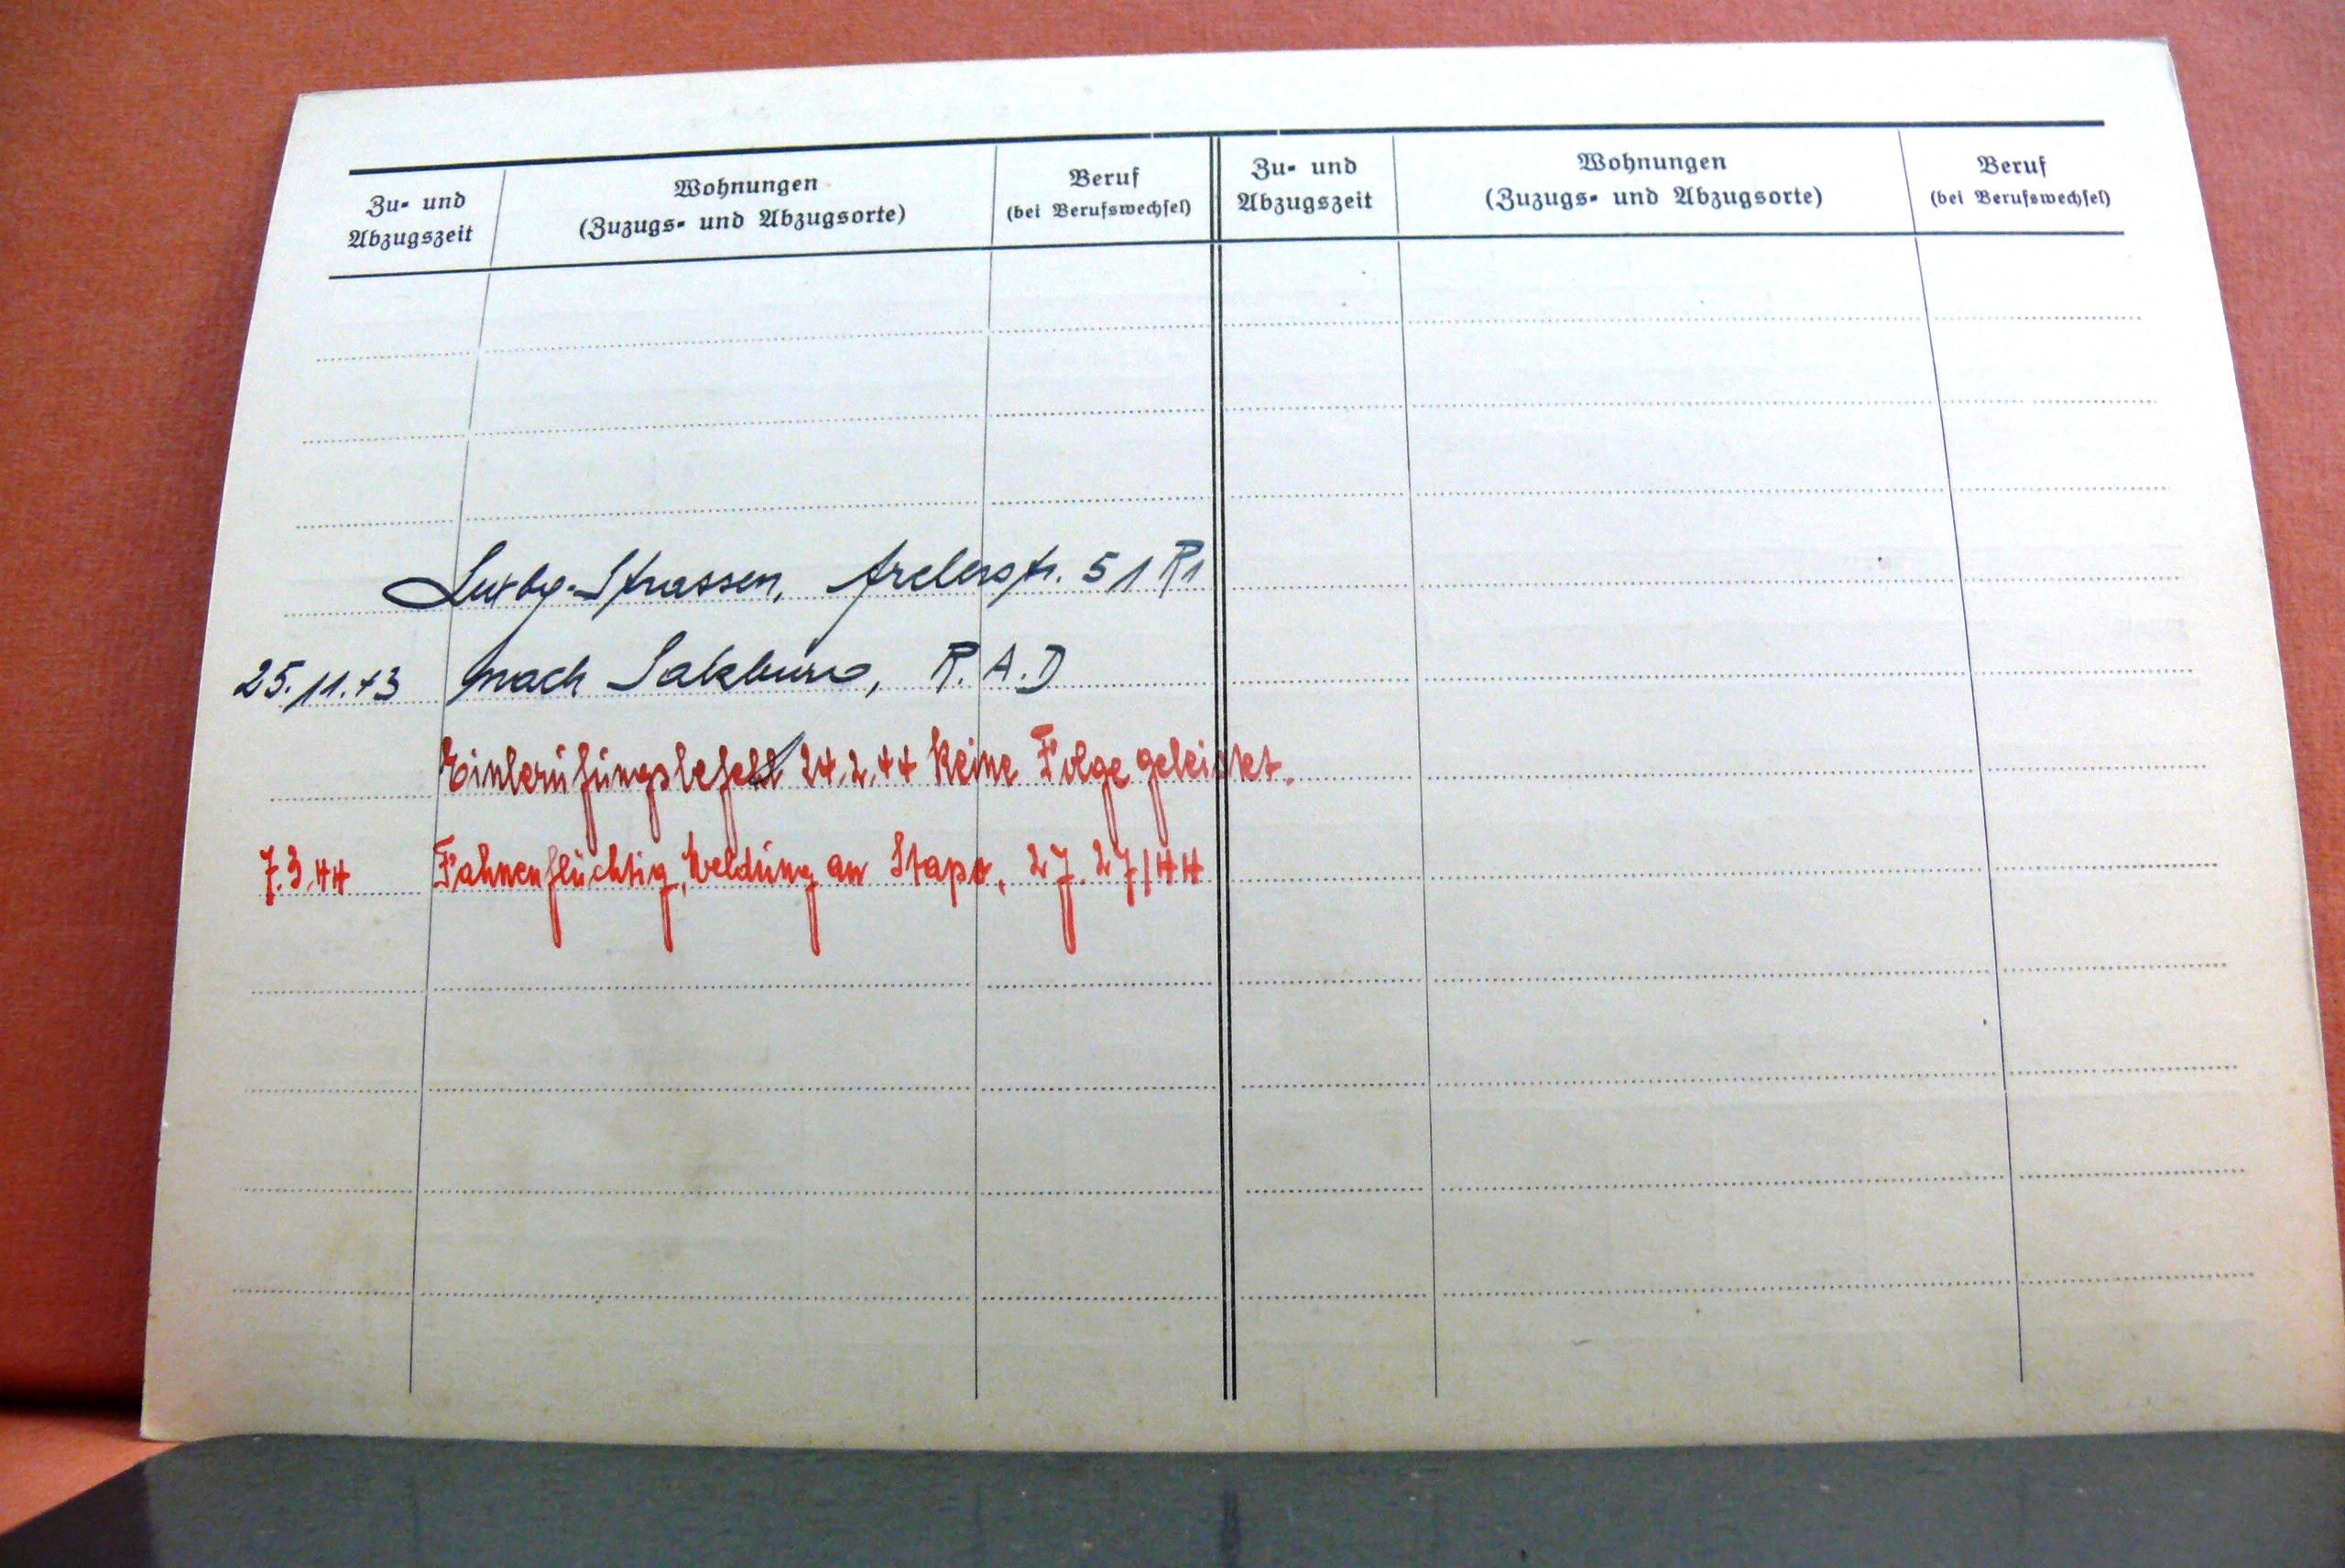 Zu- und Abzugszeit
Wohnungen (Zuzugs- und Abzugsorte)
Beruf (bei Berufswechsel)
Zu- und Abzugszeit
Wohnungen (Zuzugs- und Abzugsorte)
Beruf (bei Berufswechsel)
Luxbg.-Strassen, Arelerstr. 51
25.11.43 nach Salzburg, R.A.D
Einberufungsbefehl 24.2.44 keine Folge geleistet.
7.3.44 Fahnenflüchtig, Meldung an Stapo, 27.27/44